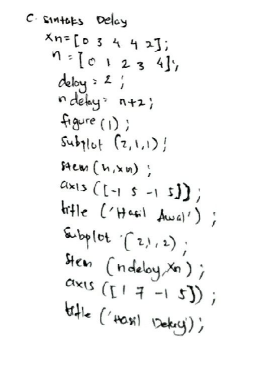 C. Sintaks Delay
xn=[0 3 4 4 2];
n=[0 1 2 3 4];
delay=2;
n delay= n+2;
figure(1);
subplot (2,1,1);
stem (n,xn);
axis ([-1 5 -1 5]);
title ('Hasil Awal');
Subplot (2,1,2);
Stem (ndelay,Xn);
axis ([1 7 -1 5]);
title ('Hasil Delay');